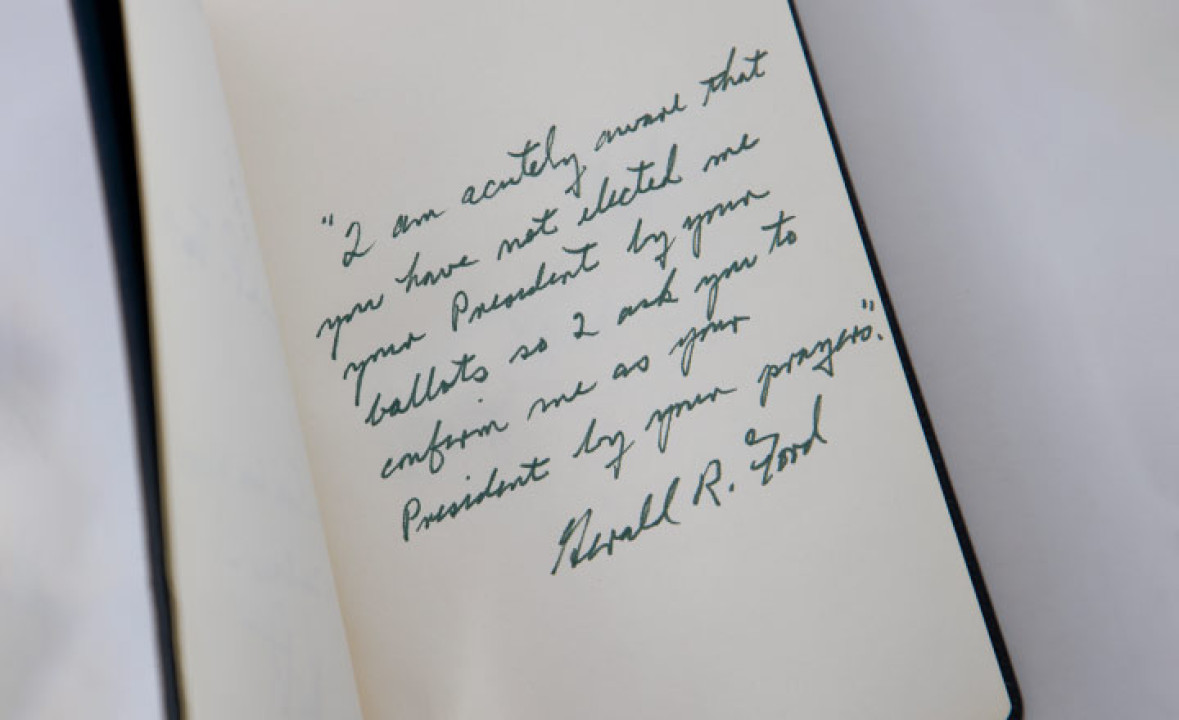 "I am acutely aware that
you have not elected me
your President by your
ballots so I ask you to
confirm me as your
President by your prayers."
Gerald R. Ford